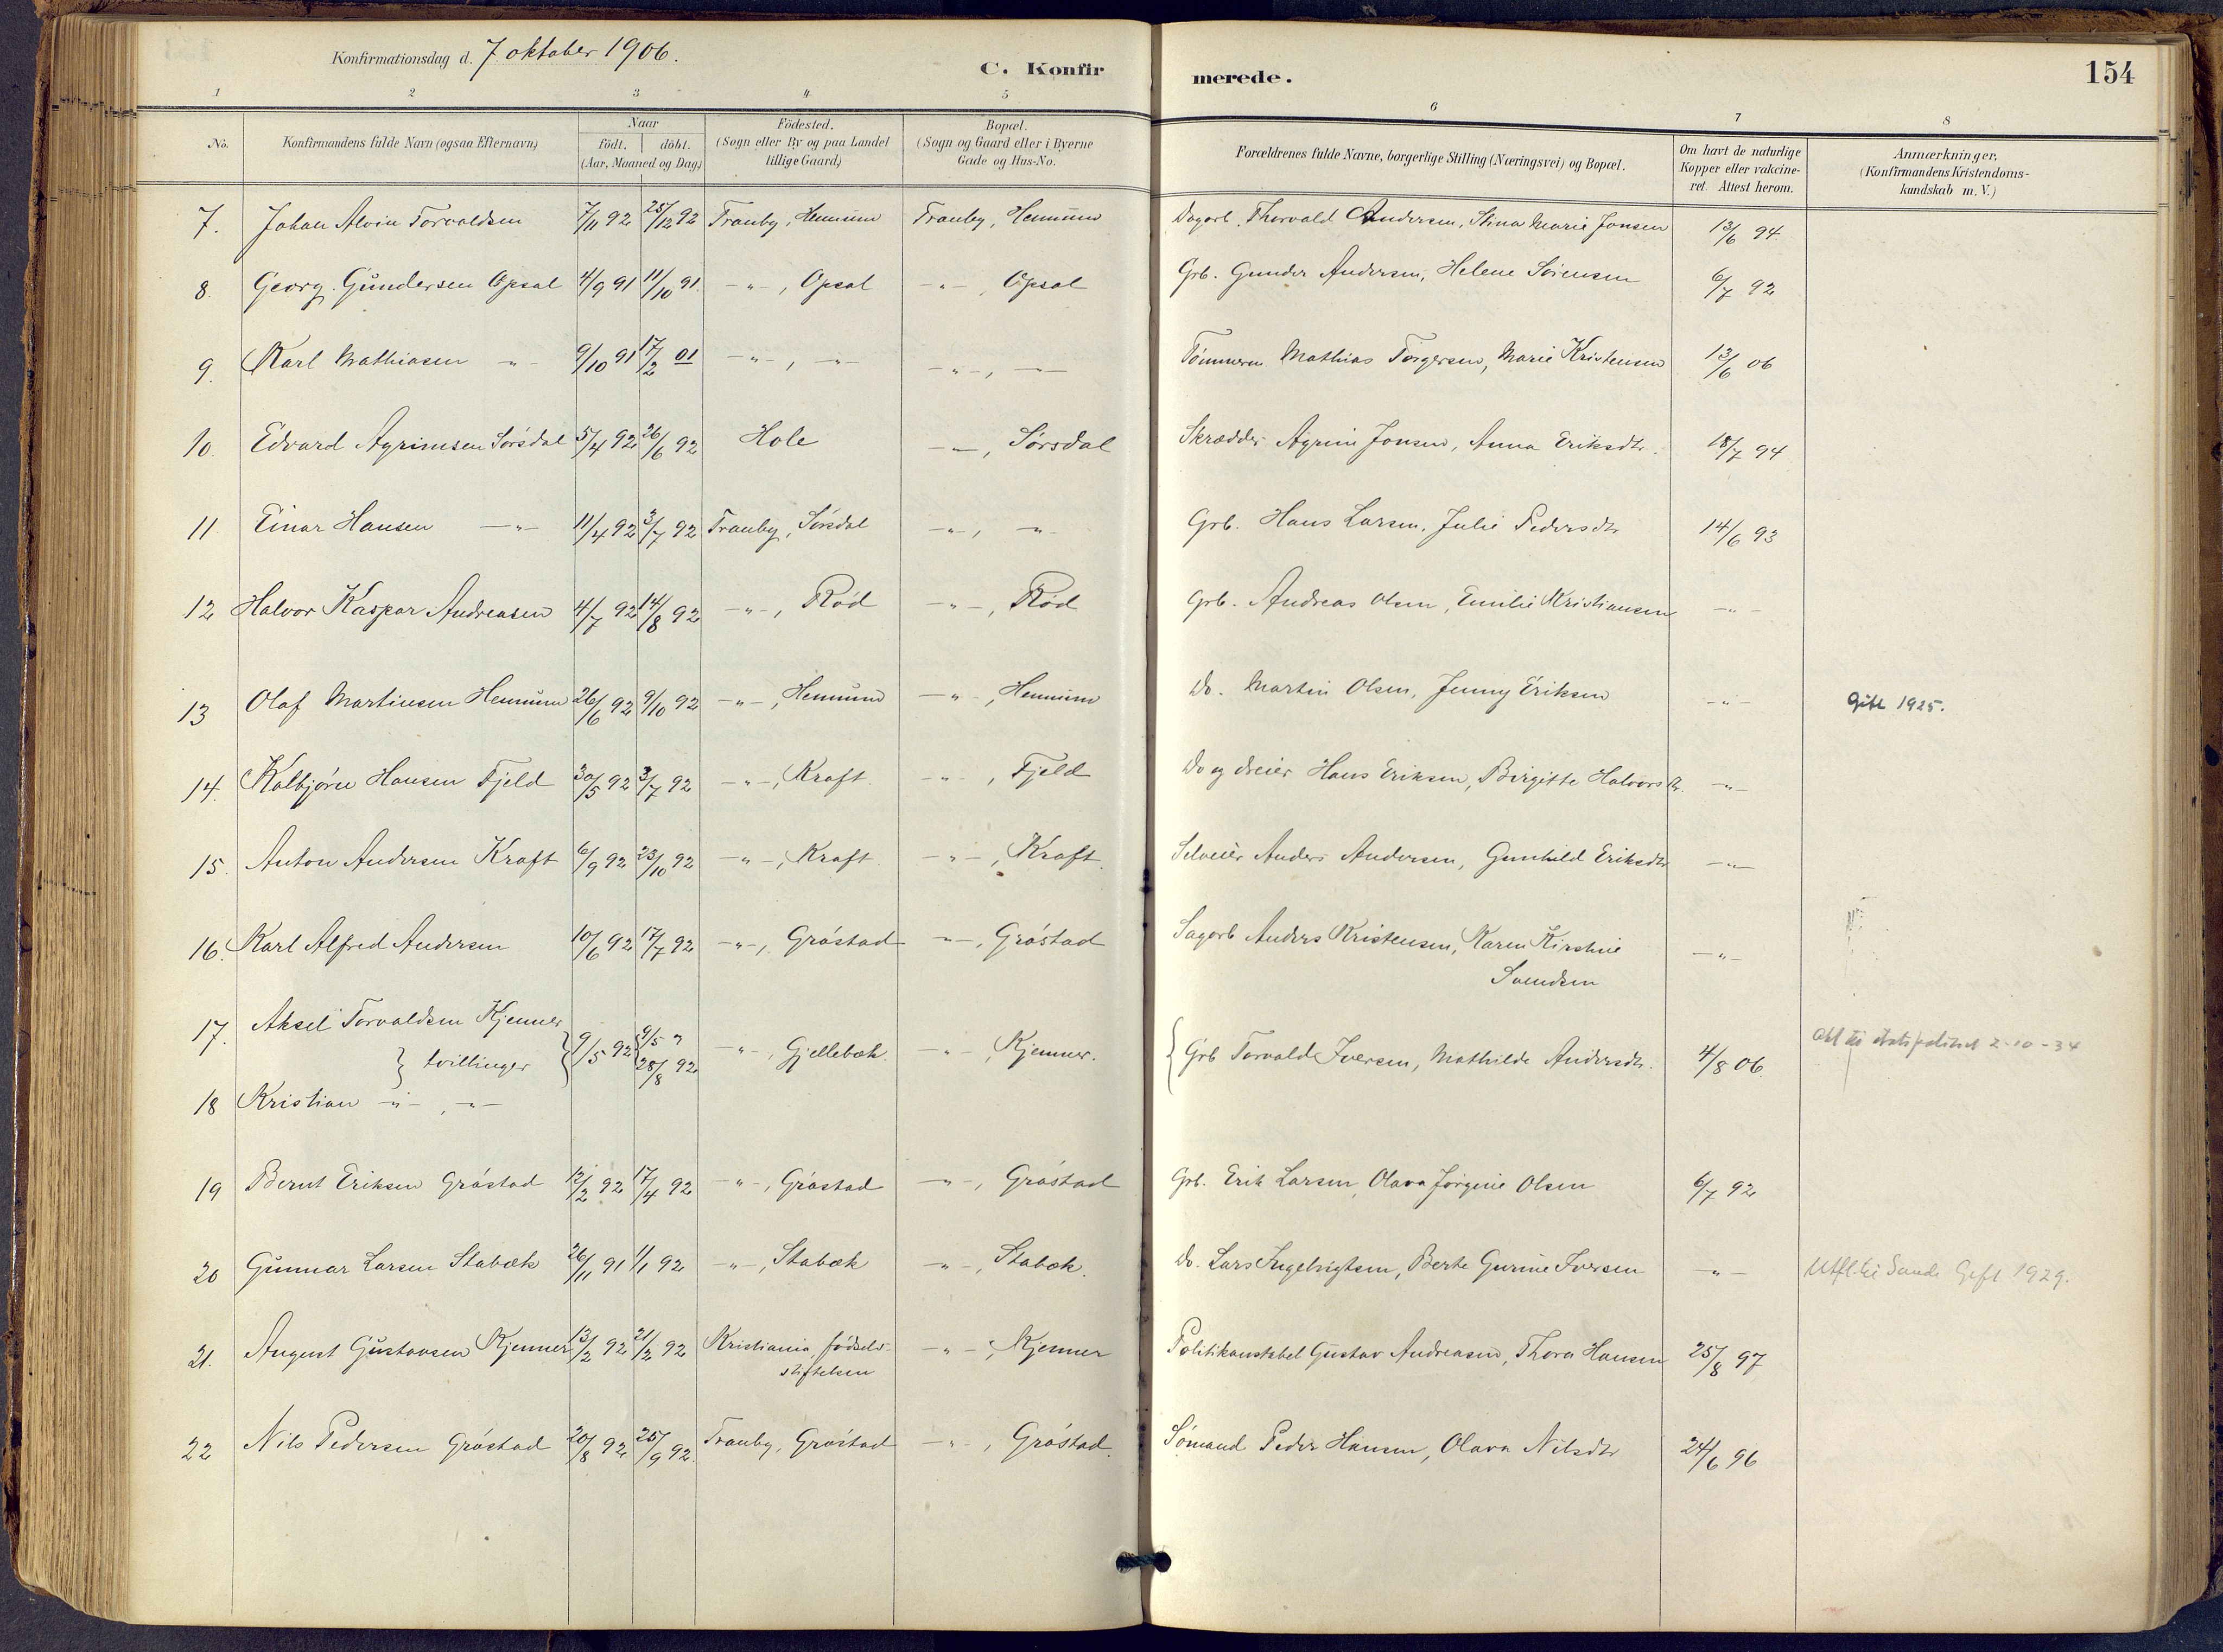 Konfirmationsdag d. 7. oktober 1906.
C. Konfir
merede.
154
1 2 3 4 5 6 7 8
No. Konfirmandens fulde Navn (ogsaa Efternavn) Naar födt. döbt. (Aar, Maaned og Dag) Födested. (Sogn eller By og paa Landet tillige Gaard) Bopæl. (Sogn og Gaard eller i Byerne Gade og Hus-No. Forældrenes fulde Navne, borgerlige Stilling (Næringsvei) og Bopæl. Om havt de naturlige Kopper eller vakcineret. Attest herom. Anmærkninger, (Konfirmandens Kristendomskundskab m. V.)
7. Johan Alvin Torvaldsen 7/11 92 25/12 92 Tranby, Hennum Tranby, Hennum Dagarb. Thorvald Andersen, Stina Marie Jonsen 13/6 94.
8. Georg Gundersen Opsal 4/9 91 11/10 91 -"-, Opsal -"-, Opsal Grb. Gunder Andersen, Helene Sörensen 6/7 92
9. Karl Mathiasen -"- 9/10 91 17/2 01 -"-, -"- -"-, -"- Tömmerm Mathias Torgersen, Marie Kristensen 13/6 06
10. Edvard Agrimsen Sörsdal 5/4 92 26/6 92 Hole -"-, Sörsdal Skrædder Agrim Jonsen, Anna Eriksdtr. 18/7 94
11 Einar Hansen -"- 11/4 92 3/7 92 Tranby, Sörsdal -"-, -"- Grb. Hans Larsen, Julie Pedersdtr 14/6 93
12 Halvor Kaspar Andreasen 4/7 92 14/8 92 -"-, Röd -"-, Röd Grb. Andreas Olsen, Emilie Kristiansen -"-
13 Olaf Martinsen Hennum 26/6 92 9/10 92 -"-, Hennum -"-, Hennum Do. Martin Olsen, Jenny Eriksen -"- Gift 1925.
14. Kolbjörn Hansen Fjeld 30/5 92 3/7 92 -"-, Kraft. -"-, Fjeld Do og dreier Hans Eriksen, Birgitte Halvorsdtr. -"-
15. Anton Andersen Kraft 6/9 92 23/10 92 -"-, Kraft. -"-, Kraft. Selveier Anders Andersen, Gunhild Eriksdtr -"-
16. Karl Alfred Andersen 10/6 92 17/7 92 -"-, Gröstad -"-, Gröstad Sagarb Anders Kristensen, Karen Kirstine
Svendsen -"-
17. Aksel Torvaldsen Kjenner
} tvillinger { 9/5 92 { 9/5 ? 28/8 92 -"-, Gjellebæk. -"-, Kjenner. { Grb Torvald Iversen, Mathilde Andersdtr. 4/8 06. 2-10-34
18 Kristian -"-, -"-
19 Bernt Eriksen Gröstad 12/2 92 17/4 92 -"-, Gröstad -"-, Gröstad Grb. Erik Larsen, Olava Jörgine Olsen 6/7 92
20 Gunnar Larsen Stabæk 26/11 91 1/1 92 -"-, Stabæk -"-, Stabæk. Do. Lars Ingebrigtsen, Berte Gurine Iversen -"- Utfl. til Sande Gift 1929.
21. August Gustavsen Kjenner 13/2 92 21/2 92 Kristiania, fødsels-
stiftelsen -"-, Kjenner Politikonstabel Gustav Andreasen, Thora Hansen 25/8 97
22 Nils Pedersen Gröstad 20/8 92 25/9 92. Tranby, Gröstad -"-, Gröstad. Sömand Peder Hansen, Olava Nilsdtr 24/6 96